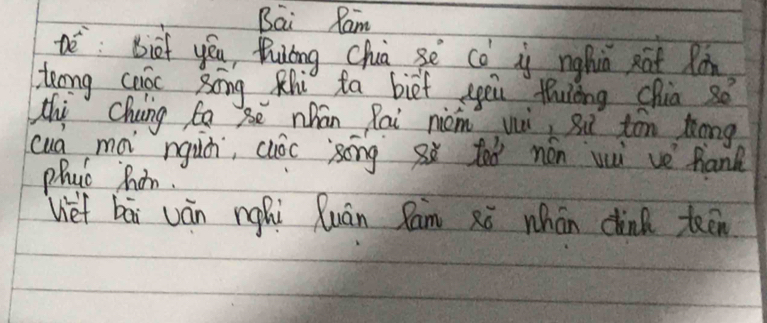 Bài làm
Đề: Biết yêu, thương chia sẻ có ý nghĩa rất lớn
trong cuộc sống khi ta biết yêu thương chia sẻ
thì chúng ta sẽ nhận lại niềm vui, sự tôn trọng
của mọi người, cuộc sống sẽ trở nên vui vẻ hạnh
phúc hơn.
Viết bài văn nghị luận làm rõ nhận định trên.